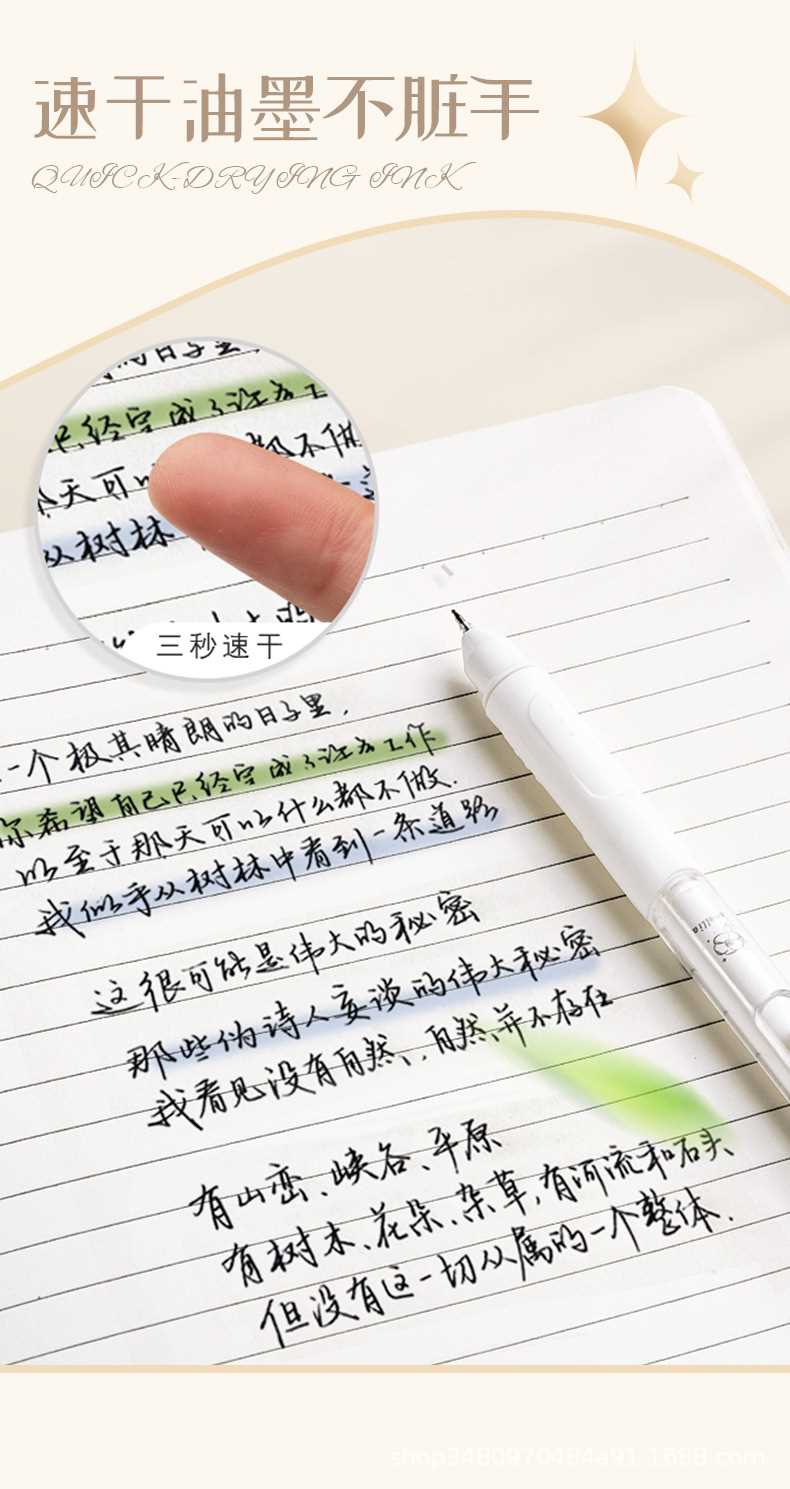 速干油墨不脏手
QUICK-DRYING INK
的日子里
已经完成了许多工
都不做
天可以
从树林
三秒速干
一个极其晴朗的日子里,
你希望自己已经完成了许多工作
以至于那天可以什么都不做.
我似乎从树林中看到一条道路
这很可能是伟大的秘密
那些伪诗人妄谈的伟大秘密
我看见没有自然、自然并不存在
有山峦、峡谷、平原
有树木、花朵、杂草,有河流和石头
但没有这一切从属的一个整体.
shop3480970484a91.1688.com